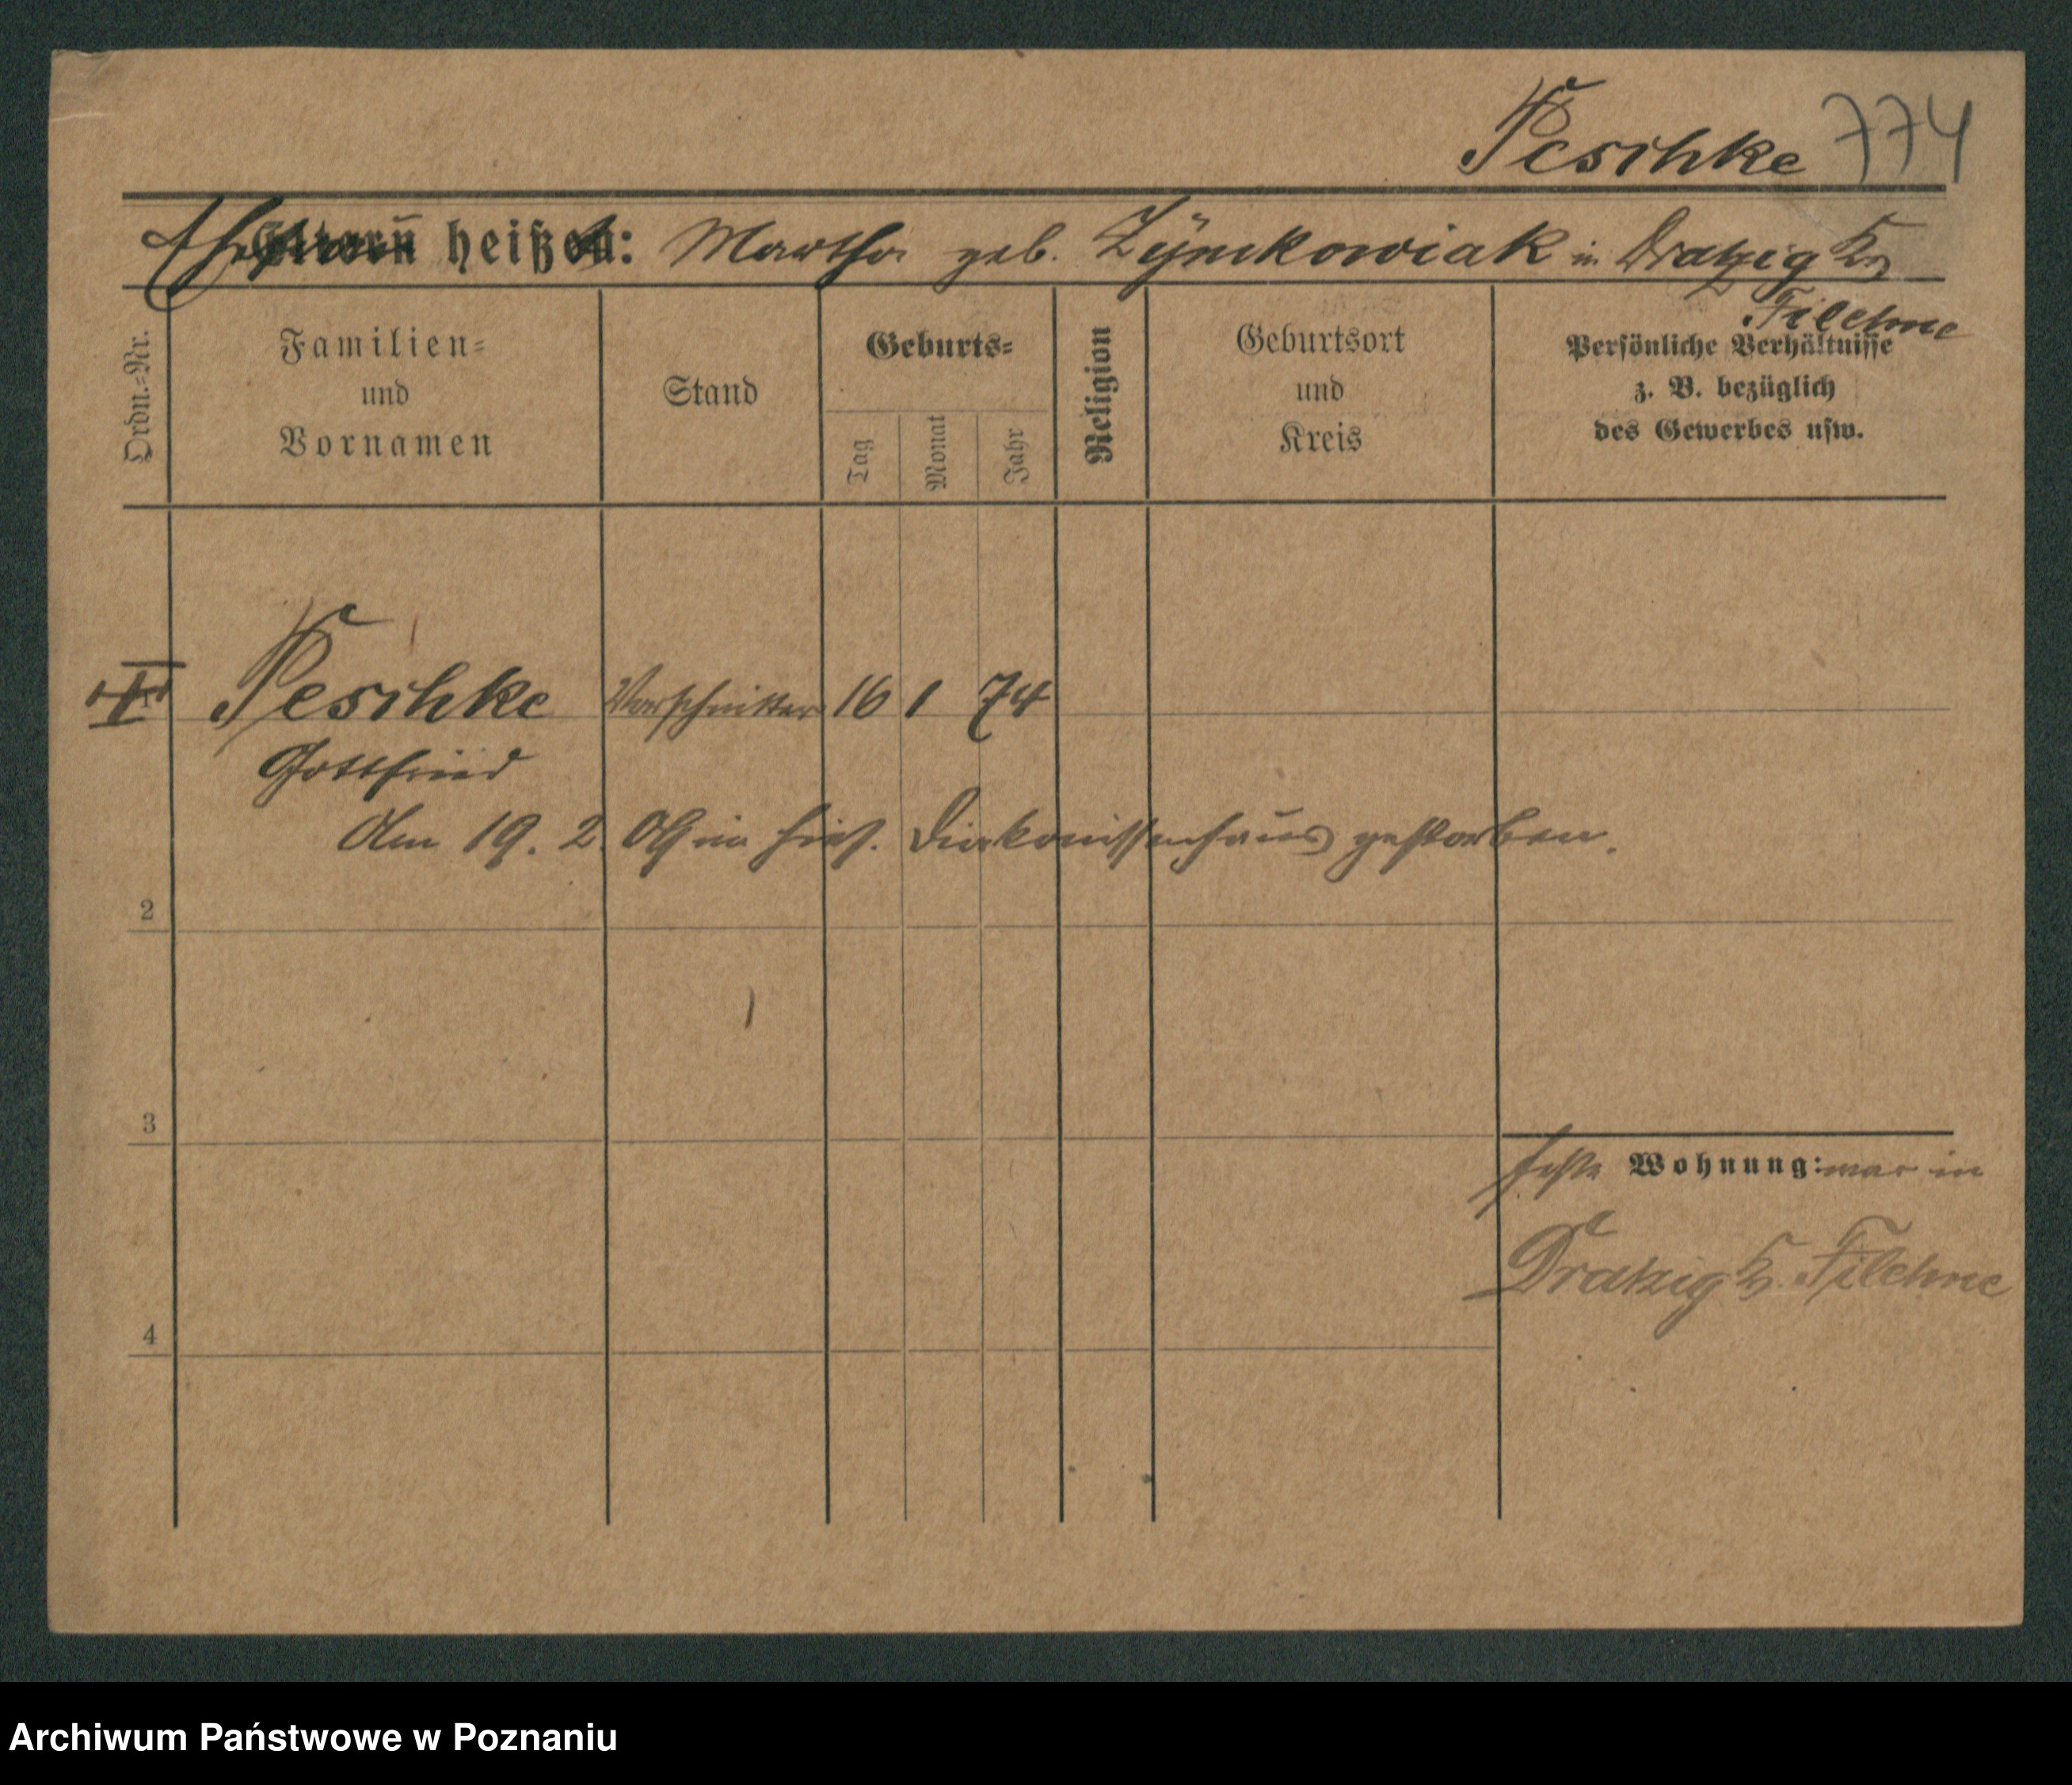 Peschke 774
Ehefrau heißt: Martha geb. Zÿmkowiak in Dratzig Kr.
Filehne
Ordn.-Nr.
Familien-
und
Vornamen
Stand
Geburts-
Tag
Monat
Jahr
Religion
Geburtsort
und
Kreis
Persönliche Verhältnisse
z. B. bezüglich
des Gewerbes usw.
Peschke Vorschnitter 16 1 74
Gottfried
Am 19. 2. 09 im hies. Diakonissenhaus gestorben.
2
3
feste Wohnung: war in
Dratzig Kr. Filehne
4
Archiwum Państwowe w Poznaniu